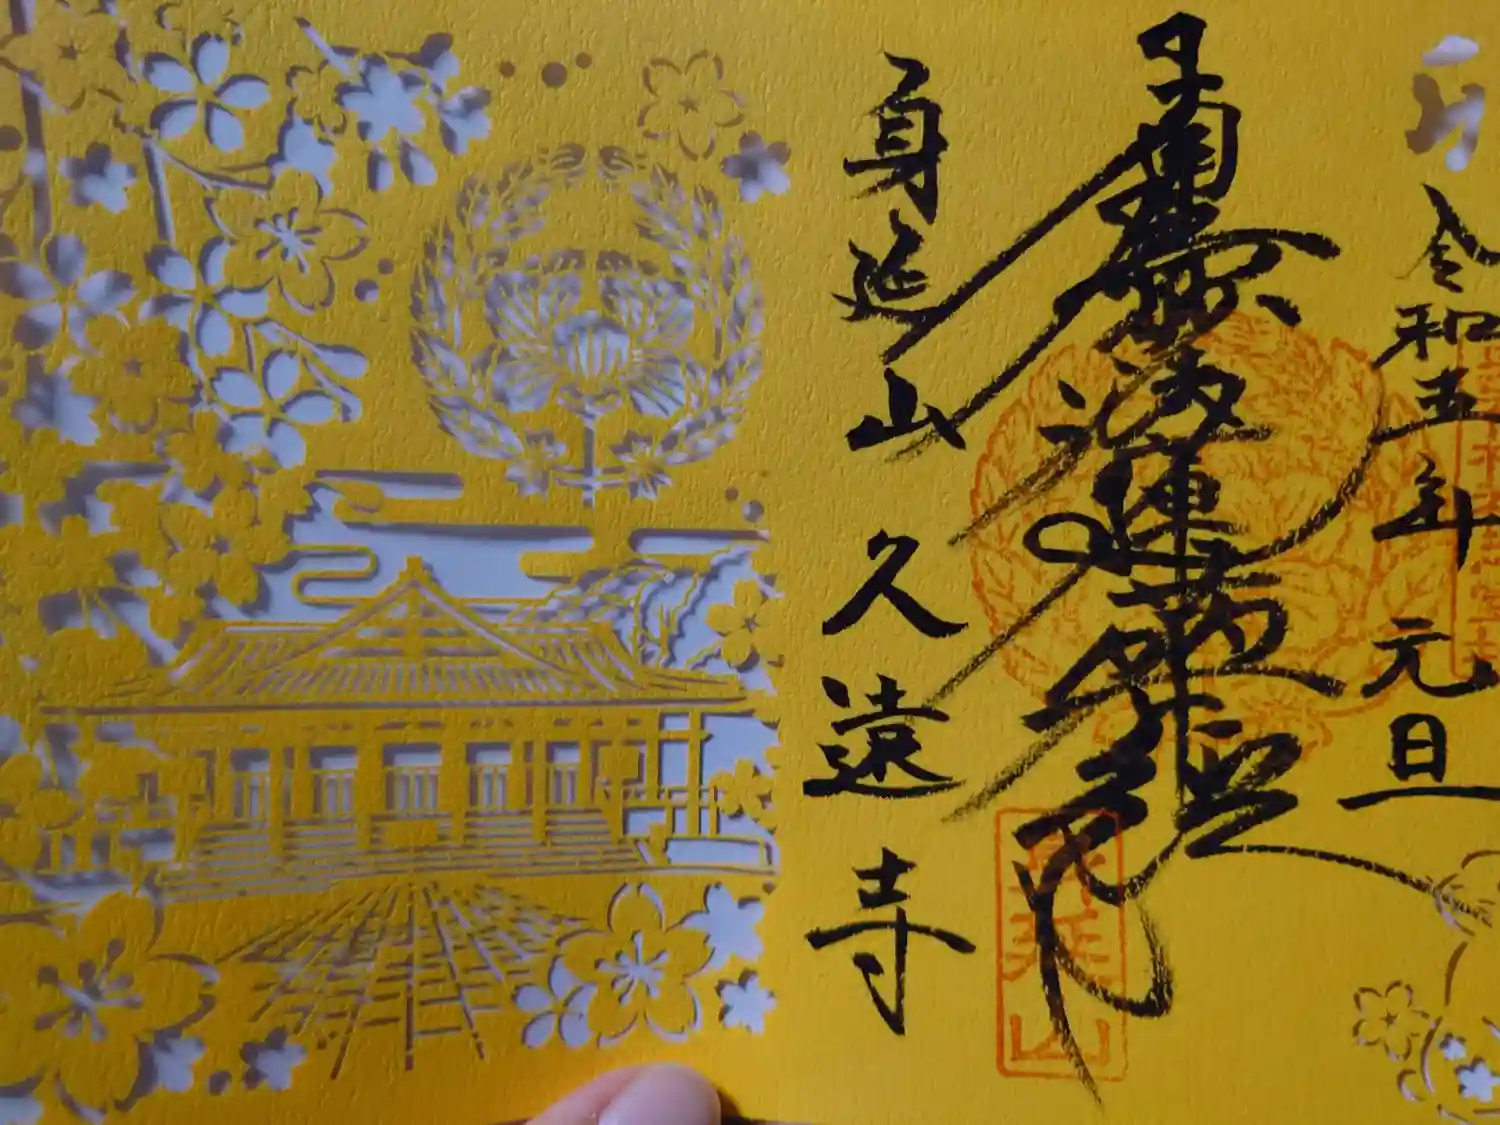 令和五年元旦
南無妙法蓮華経
身延山 久遠寺